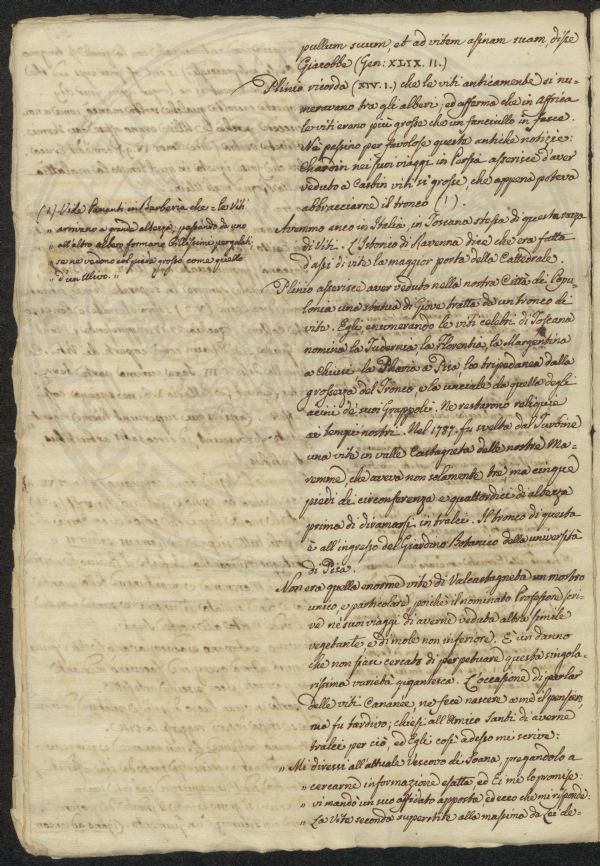 pullum suum, et ad vitem asinam suam, disse
Giacobbe (Gen: XLIX. 11.)
Plinio ricorda (XIV. 1.) che le viti anticamente si nu-
meravano tra gli alberi; ed afferma che in Affrica
le viti erano più grosse che un fanciullo in fasce.
Nè passino per favolose queste antiche notizie:
Chardin nei suoi viaggi in Persia asserisce d'aver
veduto a Casbin viti sì grosse, che appena poteva
abbracciarne il tronco (1).
(1) Vide Pananti in Barberia che = le Viti
" arrivano a grande altezza, passando da uno
" all'altro albero formano bellissime pergolati;
" se ne vedono col piede grosso come quello
" d'un Ulivo. "
Avemmo anco in Italia, in Toscana stessa di questa razza
di Viti. L'Istorico di Ravenna dice che era fatta
d'assi di vite la maggior porta della Cattedrale.
Plinio asserisce aver veduto nella nostra Città di Popu-
lonia una statua di Giove tratta da un tronco di
vite. Egli enumerando le viti celebri di Toscana
nomina la Tudernia, la Florentia, la Margentina
a Chiusi la Pharia a Pisa, la tripedanea dalla
grossezza del Tronco, e la unciale da quella degli
acini de' suoi Grappoli. Ne restarono reliquie
ai tempi nostri. Nel 1787. fu svelta dal Turbine
una vite in valle Castagneta delle nostre Ma-
remme, che aveva non solamente tre, ma cinque
piedi di circonferenza e quattordici di altezza
prima di diramarsi in tralci. Il tronco di questa
è all'ingresso del Giardino Botanico della università
di Pisa.
Non era quella enorme vite di Valcastagneta un mostro
unico, e particolare, poichè il nominato Professore scri-
ve ne' suoi viaggi di averne veduta altra simile
vegetante, e di mole non inferiore. È un danno
che non siasi cercato di perpetuare questa singola-
rissima varietà gigantesca. L'occasione di parlar
delle viti Cananée, ne fece nascere a me il pensiero,
ma fu tardivo; chiesi all'Amico Santi di averne
tralci per ciò, ed Egli così adesso mi scrive:
" Mi diressi all'attuale vescovo di Soana, pregandolo a
" cercarne informazione esatta, ed Ei me lo promise:
" vi mandò un suo affidato apposta ed ecco che mi risponde:
" La Vite seconda superstite alla massima da Lei de-